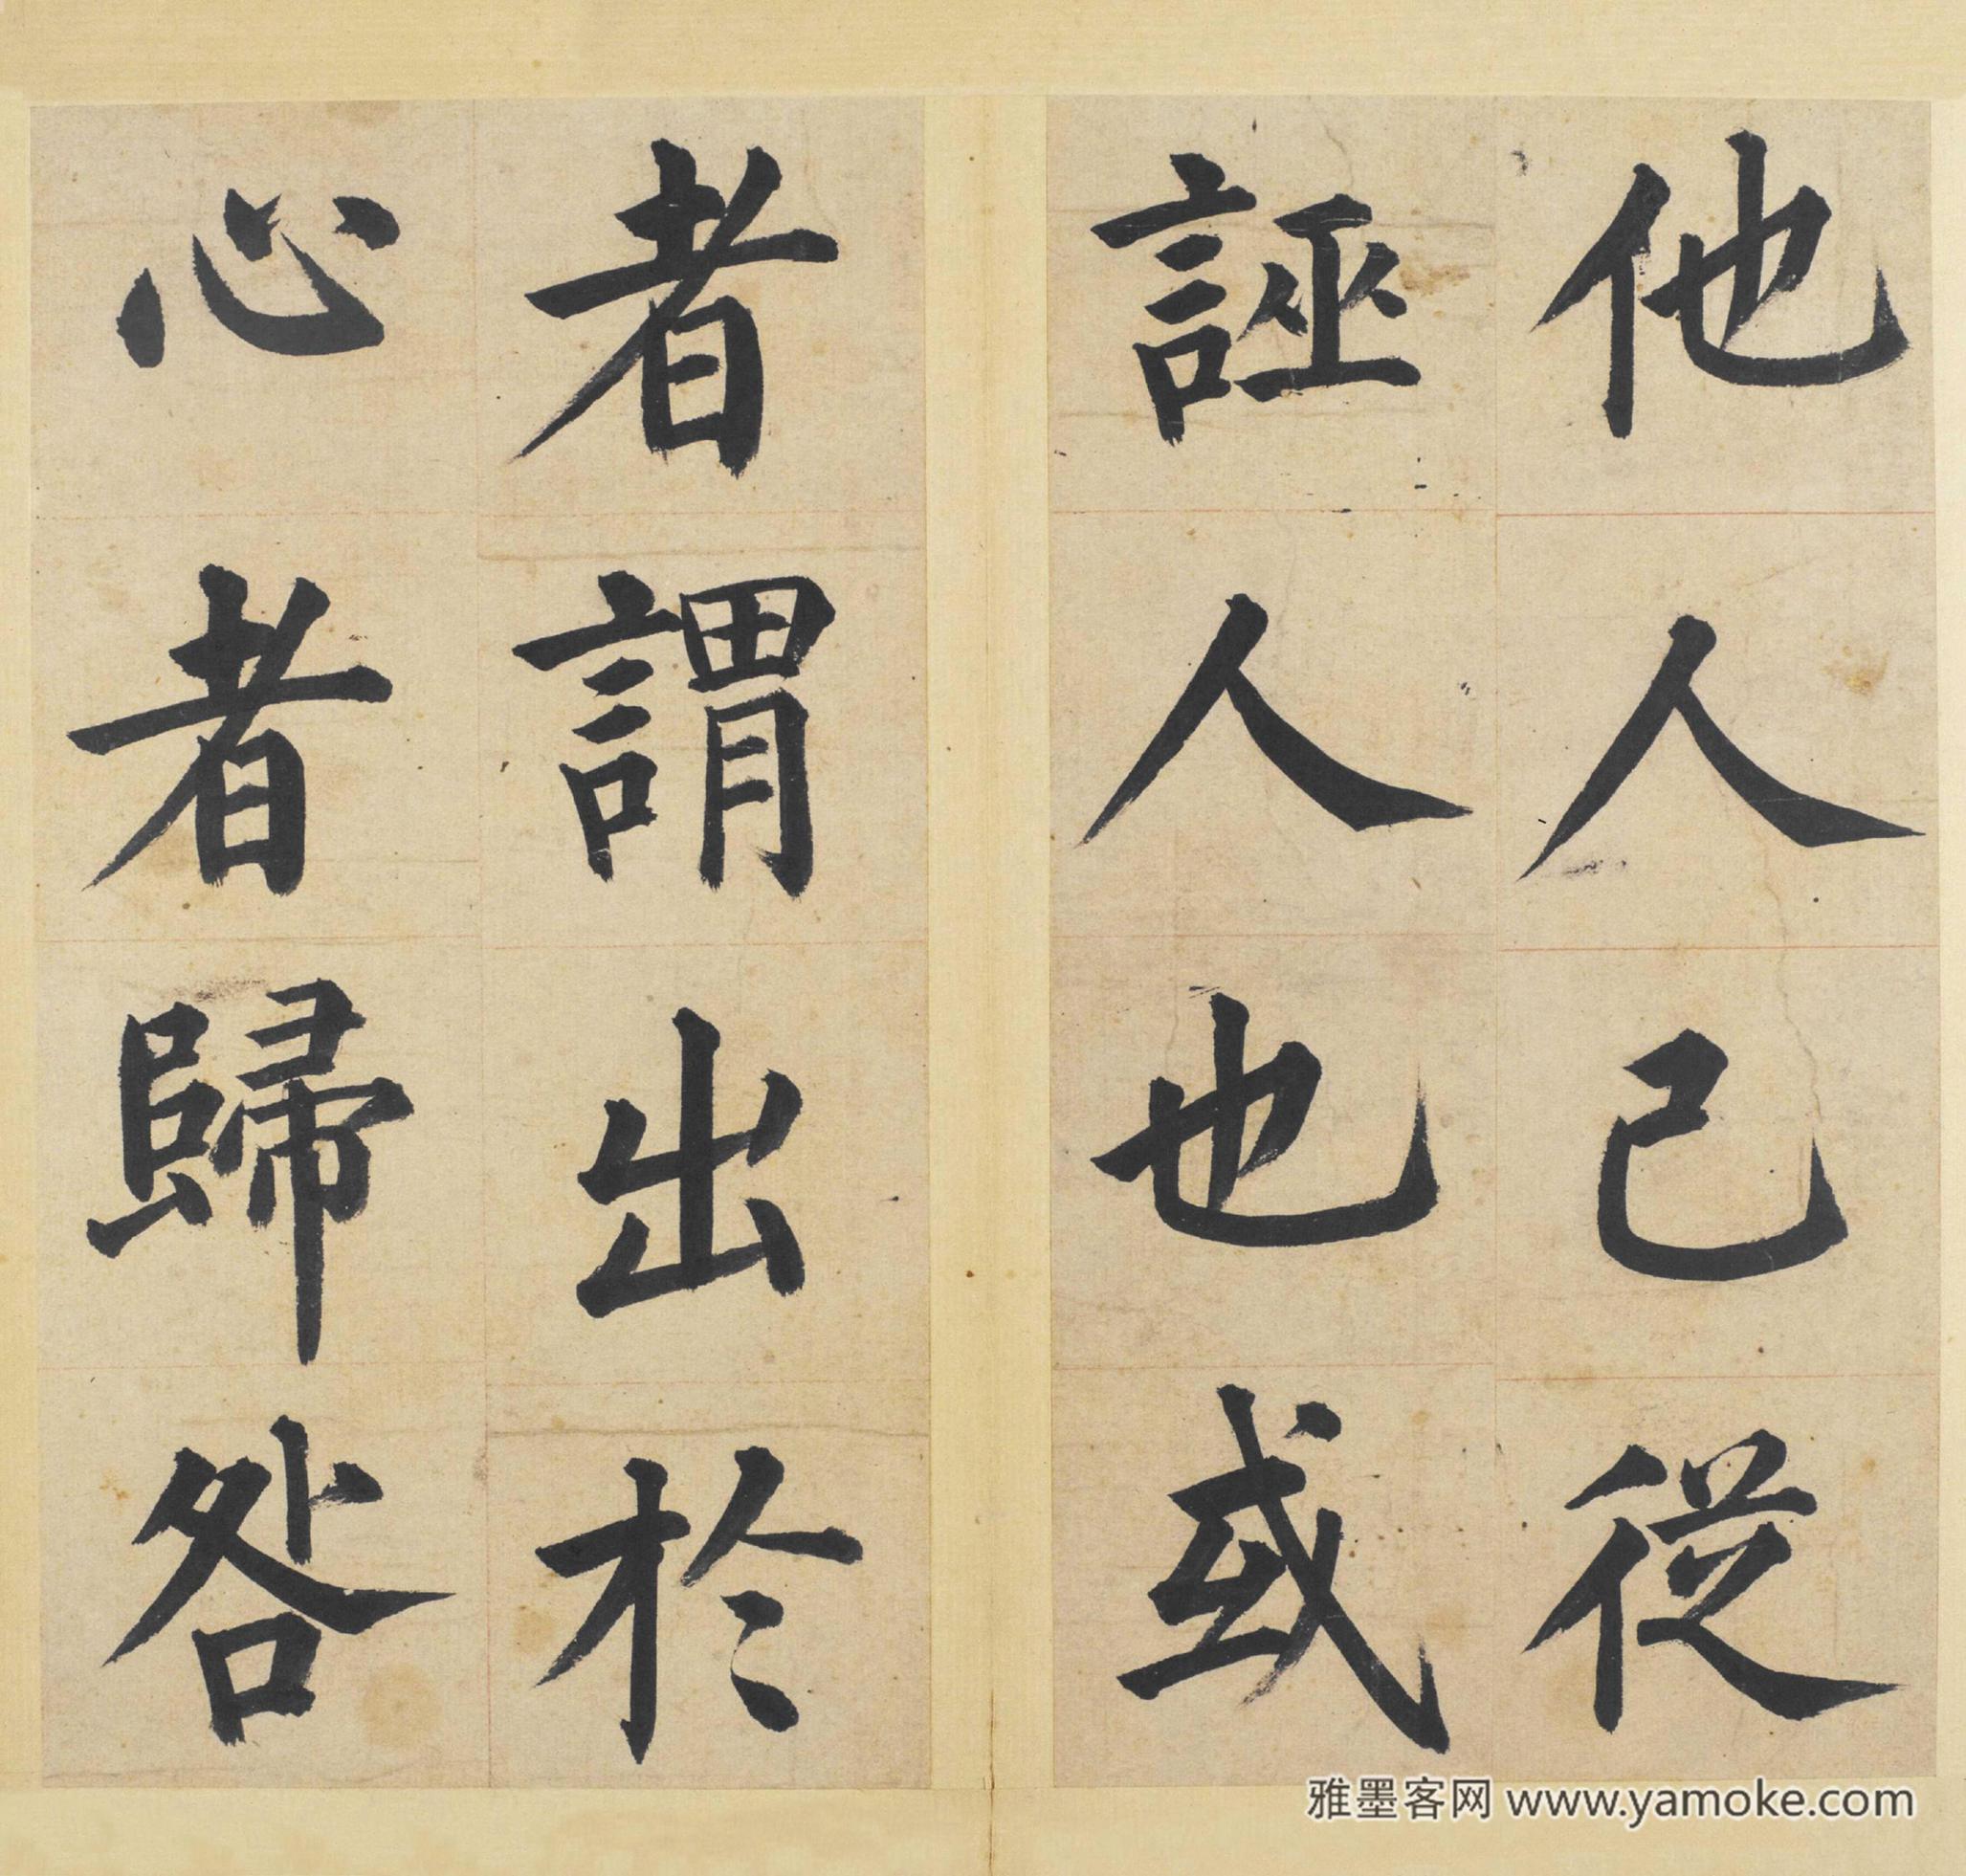 他人己從
誣人也或
者謂出於
心者歸咎
雅墨客网 www.yamoke.com